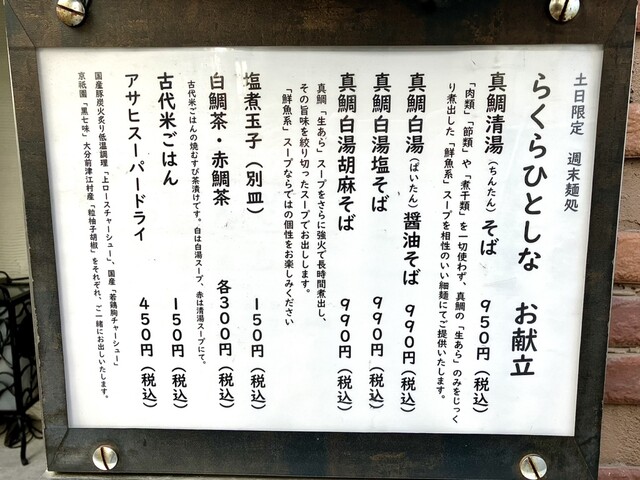 土日限定　週末麺処
らくらひとしな　お献立
真鯛清湯（ちんたん）そば　９５０円（税込）
「肉類」「節類」や「煮干類」を一切使わず、真鯛の「生あら」のみをじっく
り煮出した「鮮魚系」スープを相性のいい細麺にてご提供いたします。
真鯛白湯（ぱいたん）醤油そば　９９０円（税込）
真鯛白湯塩そば　９９０円（税込）
真鯛白湯胡麻そば　９９０円（税込）
真鯛「生あら」スープをさらに強火で長時間煮出し、
その旨味を絞り切ったスープでお出しします。
「鮮魚系」スープならではの個性をお楽しみください
塩煮玉子（別皿）　１５０円（税込）
白鯛茶・赤鯛茶　各３００円（税込）
古代米ごはんの焼むすび茶漬けです。白は白湯スープ、赤は清湯スープにて。
古代米ごはん　１５０円（税込）
アサヒスーパードライ　４５０円（税込）
国産豚炭火炙り低温調理「上ロースチャーシュー」、国産「若鶏胸チャーシュー」
京祇園「黒七味」大分前津江村産「粒柚子胡椒」をそれぞれ、ご一緒にお出しいたします。